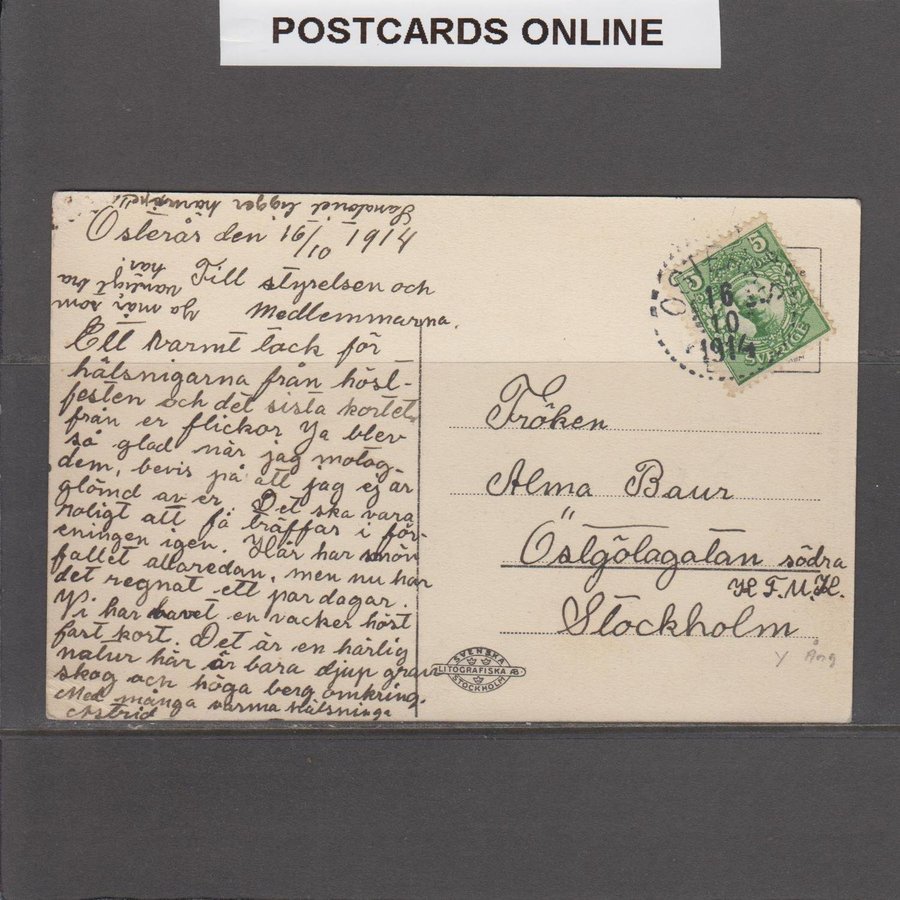 POSTCARDS ONLINE
Sanatoriet ligger
Österås den 16/10 1914
Till styrelsen och
Medlemmarna.
Ja mår som
vanligt bra
här.
Ett varmt tack för
hälsnigarna från höst-
festen och det sista kortet
från er flickor Ja blev
så glad när jag motog-
dem, bevis på att jag ej är
glömd av er. Det ska vara
roligt att få träffas i för-
eningen igen. Här har snön
fallet allaredan, men nu har
det regnat ett par dagar.
Vi har havet en vacker höst
fast kort. Det är en härlig
natur här är bara djup gran
skog och höga berg omkring.
Med många varma hälsninga
Astrid
5 5
SVERIGE
16
10
1914
Fröken
Alma Baur
Östgötagatan södra
K.F.U.K.
Stockholm
SVENSKA
LITOGRAFISKA AB.
STOCKHOLM
Y Ång